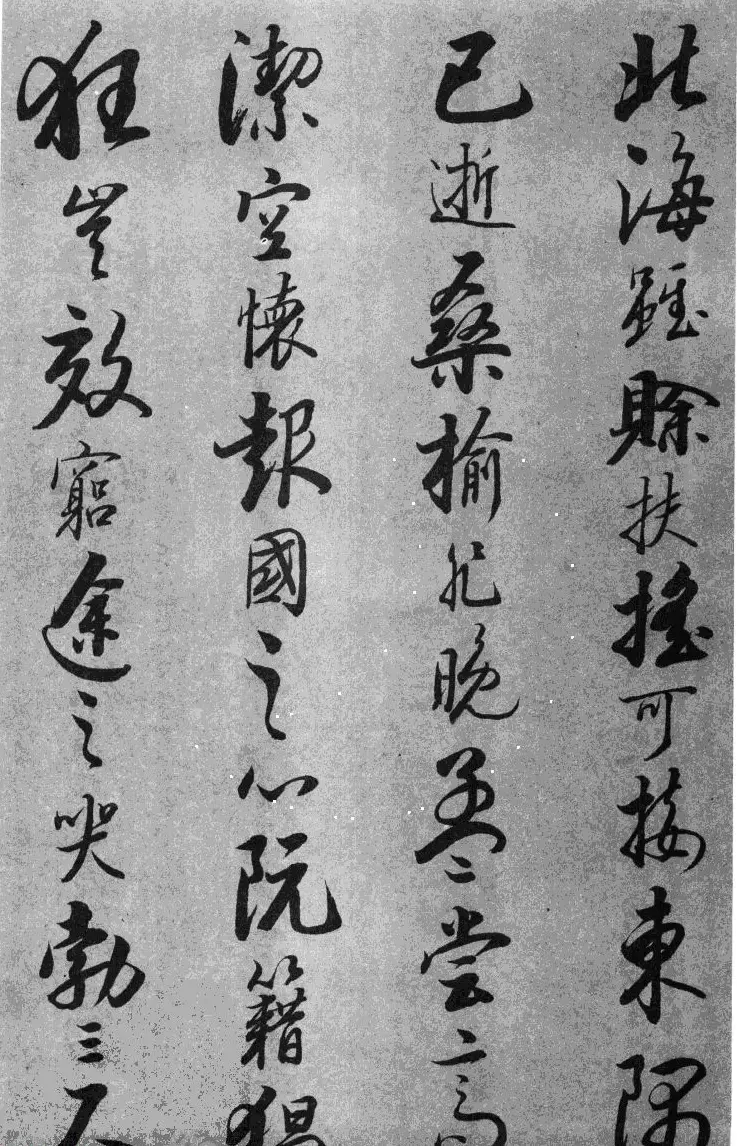 北海雖賒扶搖可接東隅
已逝桑榆非晚孟〻嘗〻高
潔空懷報國之心阮籍猖
狂豈效窮途之哭勃三尺